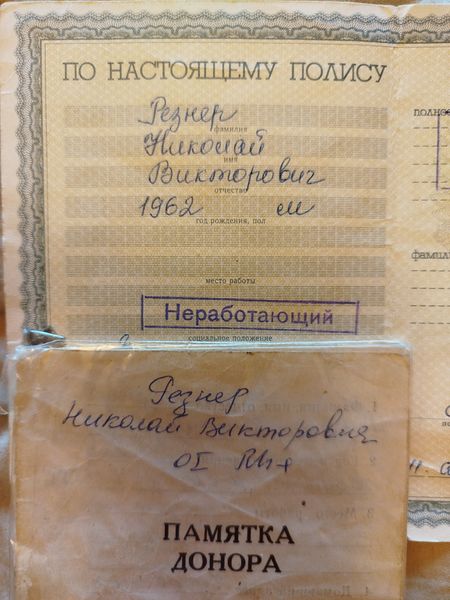 ПО НАСТОЯЩЕМУ ПОЛИСУ
Резнер
фамилия
Николай
имя
Викторович
отчество
1962 м
год рождения, пол
место работы
Неработающий
социальное положение
Резнер
Николай Викторович
OI Rh+
ПАМЯТКА
ДОНОРА